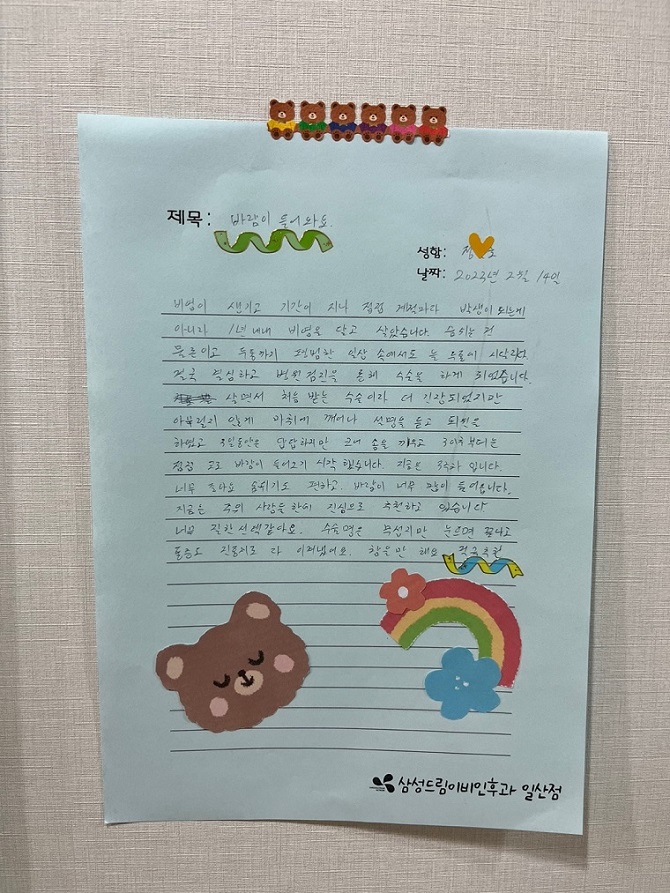 제목: 바람이 들어와요.
성함: 정 호
날짜: 2023년 2월 14일
비염이 생기고 기간이 지나 점점 계절마다 발생이 되는게
아니라 1년 내내 비염을 달고 살았습니다. 숨쉬는 건
물론이고 두통까지 평범한 일상 속에서도 늘 두통에 시달렸다.
결국 결심하고 병원 검진을 통해 수술을 하게 되었습니다.
살면서 처음 받는 수술이라 더 긴장되었지만
아무렇지 않게 마취에 깨어나 설명을 듣고 퇴원을
하였고 3일동안은 답답하지만 코에 솜을 끼우고 3일차부터는
점점 코로 바람이 들어오기 시작 했습니다. 지금은 3주차 입니다.
너무 좋아요 숨쉬기도 편하고. 바람이 너무 많이 들어옵니다.
지금은 주위 사람들한테 진심으로 추천하고 있습니다
너무 잘한 선택같아요. 수술명은 무섭지만 눈뜨면 끝나고
통증도 진통제로 다 이겨냅어요. 창문만 해요 적극추천
삼성드림이비인후과 일산점